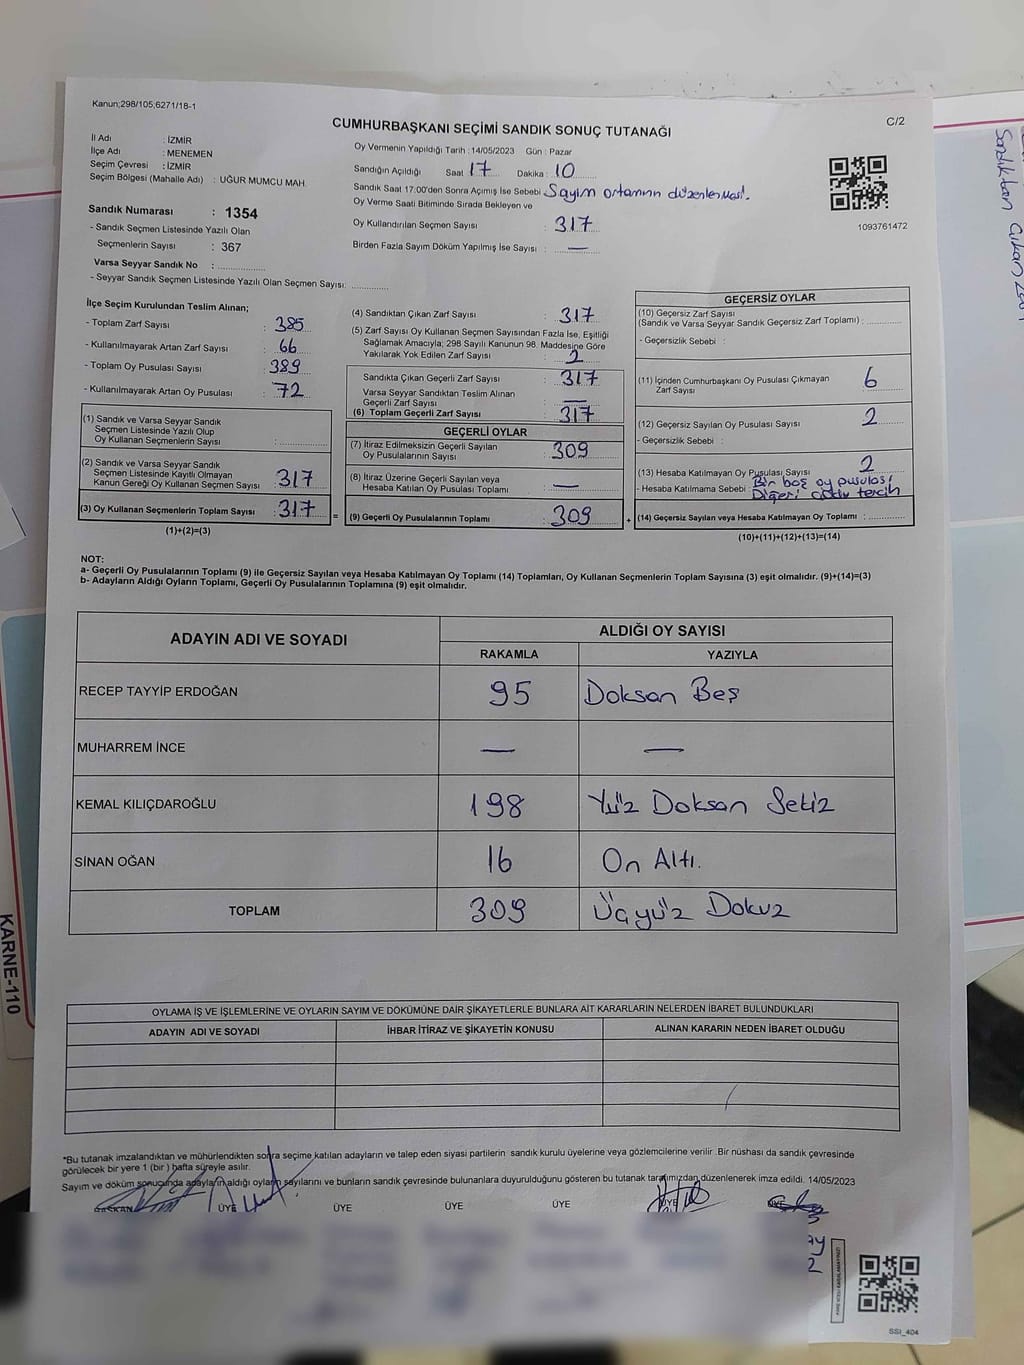 Kanun;298/105;6271/18-1
C/2
CUMHURBAŞKANI SEÇİMİ SANDIK SONUÇ TUTANAĞI
İl Adı : İZMİR
İlçe Adı : MENEMEN
Seçim Çevresi : İZMİR
Seçim Bölgesi (Mahalle Adı) : UĞUR MUMCU MAH.
Sandık Numarası : 1354
- Sandık Seçmen Listesinde Yazılı Olan
Seçmenlerin Sayısı : 367
Varsa Seyyar Sandık No :
- Seyyar Sandık Seçmen Listesinde Yazılı Olan Seçmen Sayısı:
Oy Vermenin Yapıldığı Tarih : 14/05/2023 Gün : Pazar
Sandığın Açıldığı Saat 17 Dakika : 10
Sandık Saat 17:00'den Sonra Açımış İse Sebebi : Sayım ortamının düzenlenmesi.
Oy Verme Saati Bitiminde Sırada Bekleyen ve
Oy Kullandırılan Seçmen Sayısı : 317
Birden Fazla Sayım Döküm Yapılmış İse Sayısı : —
1093761472
İlçe Seçim Kurulundan Teslim Alınan;
- Toplam Zarf Sayısı : 385
- Kullanılmayarak Artan Zarf Sayısı : 66
- Toplam Oy Pusulası Sayısı : 389
- Kullanılmayarak Artan Oy Pusulası : 72
(1) Sandık ve Varsa Seyyar Sandık
Seçmen Listesinde Yazılı Olup
Oy Kullanan Seçmenlerin Sayısı :
(2) Sandık ve Varsa Seyyar Sandık
Seçmen Listesinde Kayıtlı Olmayan
Kanun Gereği Oy Kullanan Seçmen Sayısı : 317
(3) Oy Kullanan Seçmenlerin Toplam Sayısı : 317
(1)+(2)=(3)
(4) Sandıktan Çıkan Zarf Sayısı : 317
(5) Zarf Sayısı Oy Kullanan Seçmen Sayısından Fazla İse, Eşitliği
Sağlamak Amacıyla; 298 Sayılı Kanunun 98. Maddesine Göre
Yakılarak Yok Edilen Zarf Sayısı : 2
Sandıkta Çıkan Geçerli Zarf Sayısı : 317
Varsa Seyyar Sandıktan Teslim Alınan
Geçerli Zarf Sayısı : —
(6) Toplam Geçerli Zarf Sayısı : 317
GEÇERLİ OYLAR
(7) İtiraz Edilmeksizin Geçerli Sayılan
Oy Pusulalarının Sayısı : 309
(8) İtiraz Üzerine Geçerli Sayılan veya
Hesaba Katılan Oy Pusulası Toplamı : —
= (9) Geçerli Oy Pusulalarının Toplamı : 309 +
GEÇERSİZ OYLAR
(10) Geçersiz Zarf Sayısı
(Sandık ve Varsa Seyyar Sandık Geçersiz Zarf Toplamı) :
- Geçersizlik Sebebi :
(11) İçinden Cumhurbaşkanı Oy Pusulası Çıkmayan
Zarf Sayısı : 6
(12) Geçersiz Sayılan Oy Pusulası Sayısı : 2
- Geçersizlik Sebebi :
(13) Hesaba Katılmayan Oy Pusulası Sayısı : 2
- Hesaba Katılmama Sebebi : Bir boş oy pusulası
Diğeri tercih
(14) Geçersiz Sayılan veya Hesaba Katılmayan Oy Toplamı :
(10)+(11)+(12)+(13)=(14)
NOT:
a- Geçerli Oy Pusulalarının Toplamı (9) ile Geçersiz Sayılan veya Hesaba Katılmayan Oy Toplamı (14) Toplamları, Oy Kullanan Seçmenlerin Toplam Sayısına (3) eşit olmalıdır. (9)+(14)=(3)
b- Adayların Aldığı Oyların Toplamı, Geçerli Oy Pusulalarının Toplamına (9) eşit olmalıdır.
ADAYIN ADI VE SOYADI
ALDIĞI OY SAYISI
RAKAMLA YAZIYLA
RECEP TAYYİP ERDOĞAN 95 Doksan Beş
MUHARREM İNCE — —
KEMAL KILIÇDAROĞLU 198 Yüz Doksan Sekiz
SİNAN OĞAN 16 On Altı.
TOPLAM 309 Üçyüz Dokuz
OYLAMA İŞ VE İŞLEMLERİNE VE OYLARIN SAYIM VE DÖKÜMÜNE DAİR ŞİKAYETLERLE BUNLARA AİT KARARLARIN NELERDEN İBARET BULUNDUKLARI
ADAYIN ADI VE SOYADI İHBAR İTİRAZ VE ŞİKAYETİN KONUSU ALINAN KARARIN NEDEN İBARET OLDUĞU
*Bu tutanak imzalandıktan ve mühürlendikten sonra seçime katılan adayların ve talep eden siyasi partilerin sandık kurulu üyelerine veya gözlemcilerine verilir. Bir nüshası da sandık çevresinde
görülecek bir yere 1 (bir) hafta süreyle asılır.
Sayım ve döküm sonucunda adayların aldığı oyların sayılarını ve bunların sandık çevresinde bulunanlara duyurulduğunu gösteren bu tutanak tarafımızdan düzenlenerek imza edildi. 14/05/2023
BAŞKAN ÜYE ÜYE ÜYE ÜYE ÜYE ÜYE
SSİ_404
KARNE-110
Sandıktan Çıkan